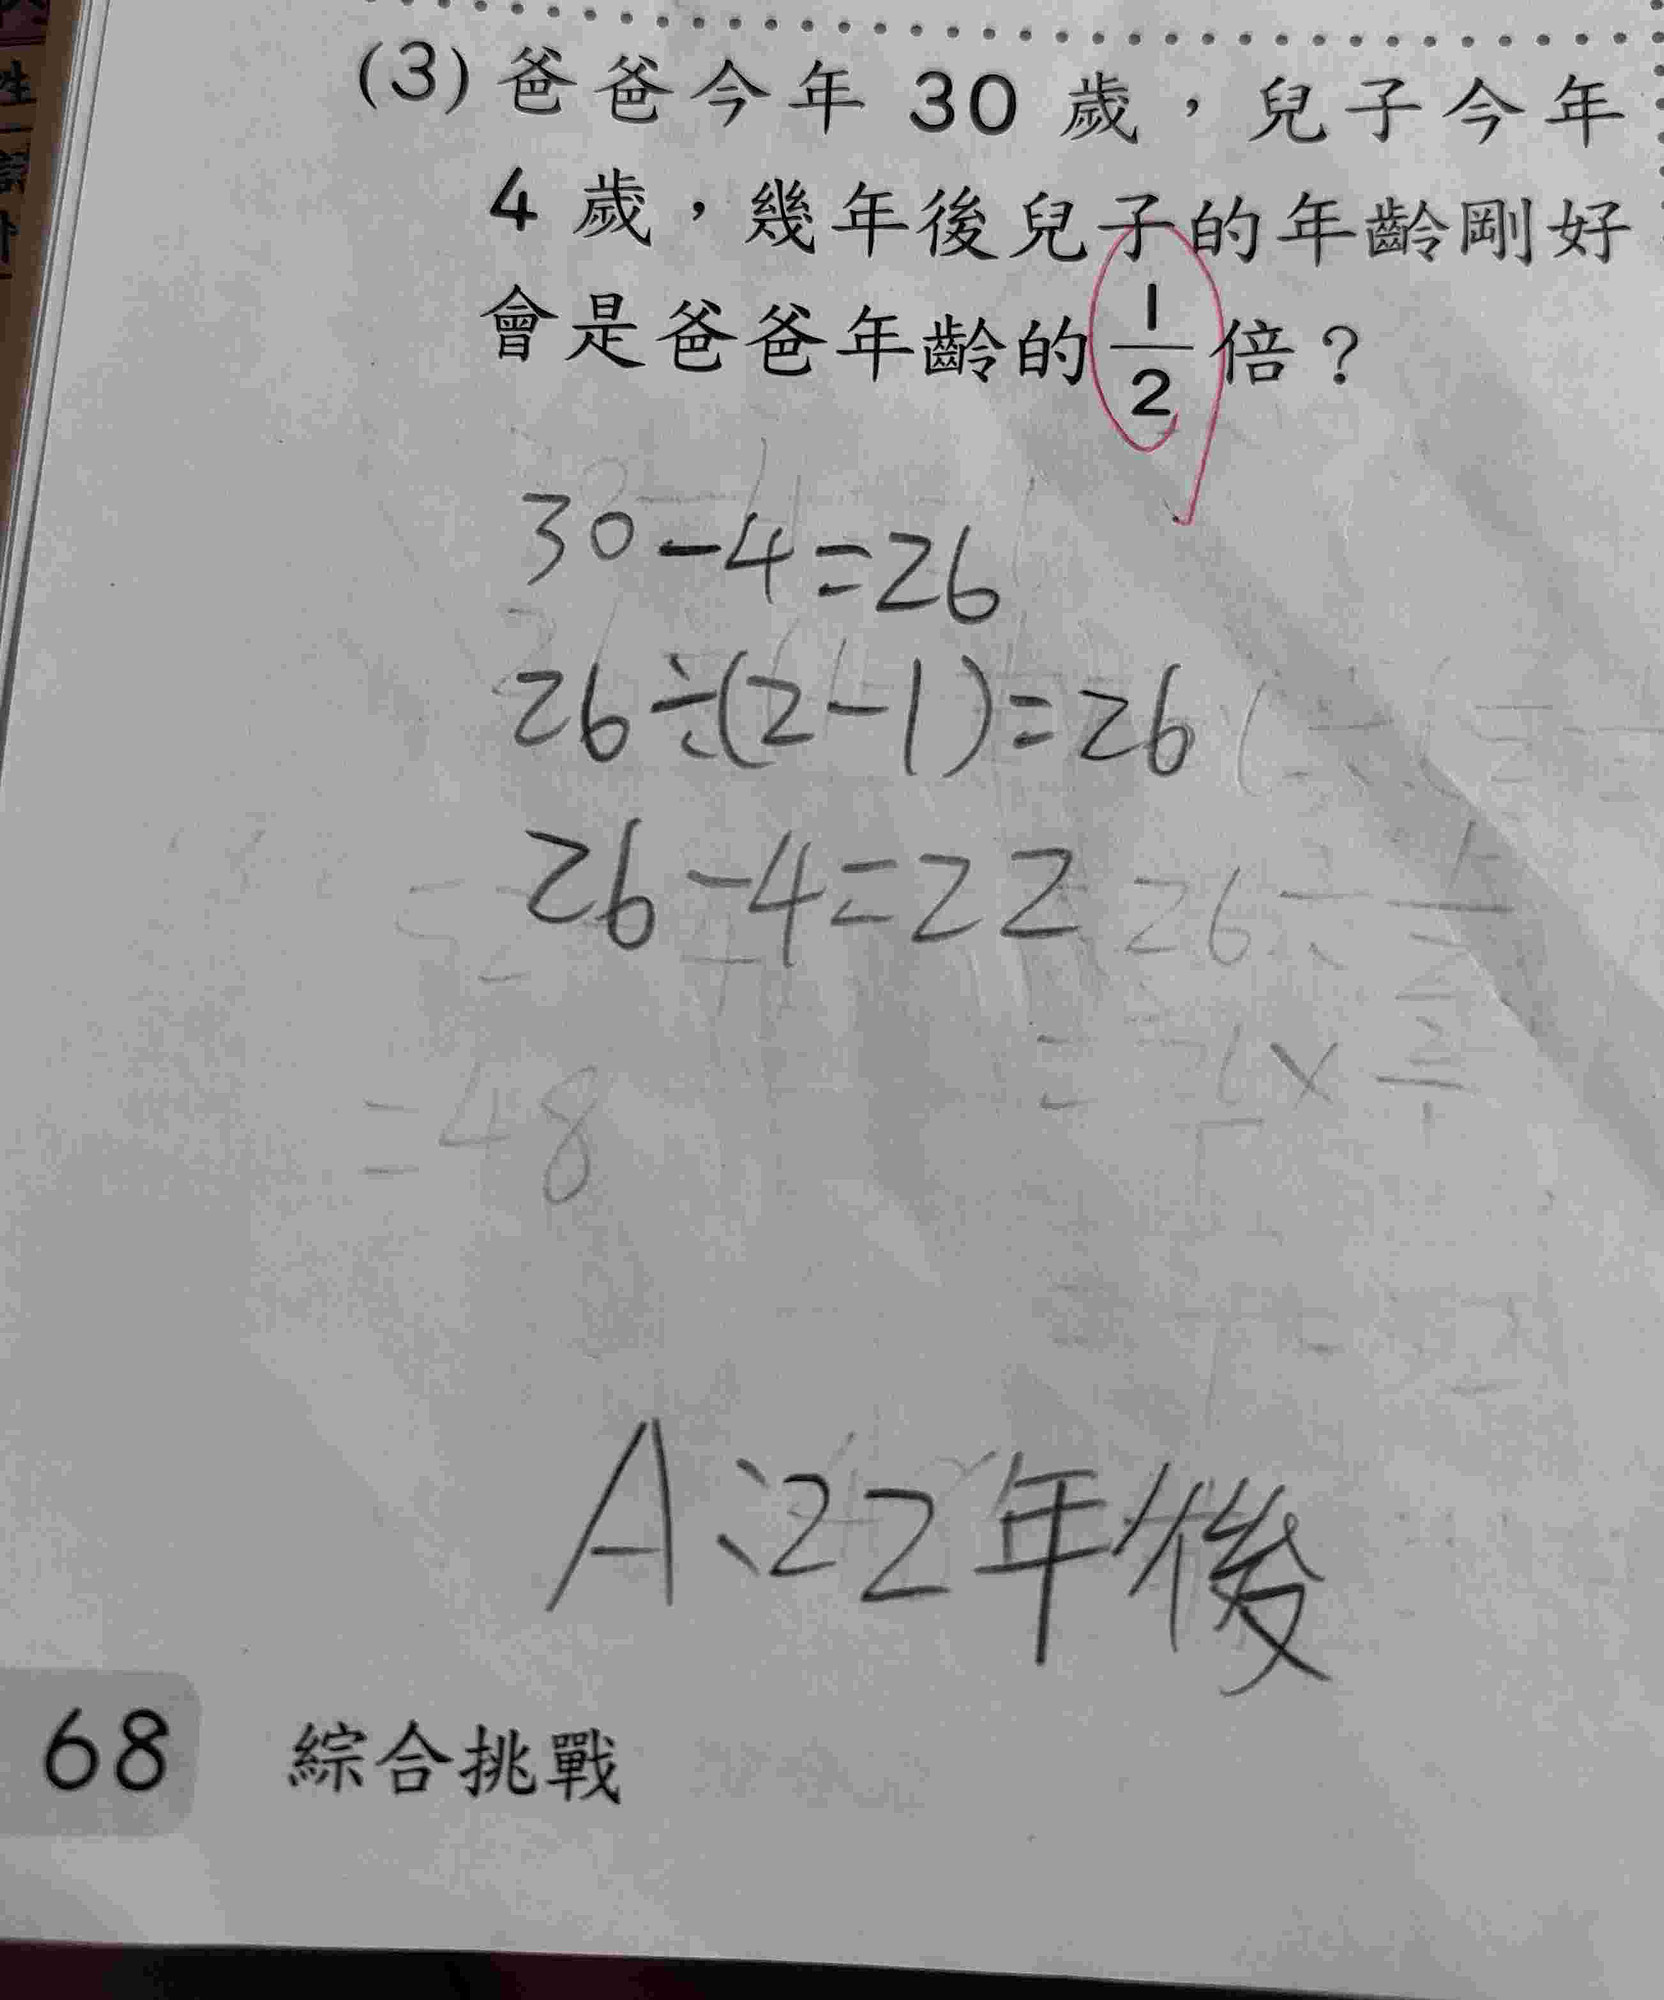 (3) 爸爸今年 30 歲，兒子今年
4 歲，幾年後兒子的年齡剛好
會是爸爸年齡的 1/2 倍？
30-4=26
26÷(2-1)=26
26-4=22
26÷1/2
=48
A:22年後
68 綜合挑戰